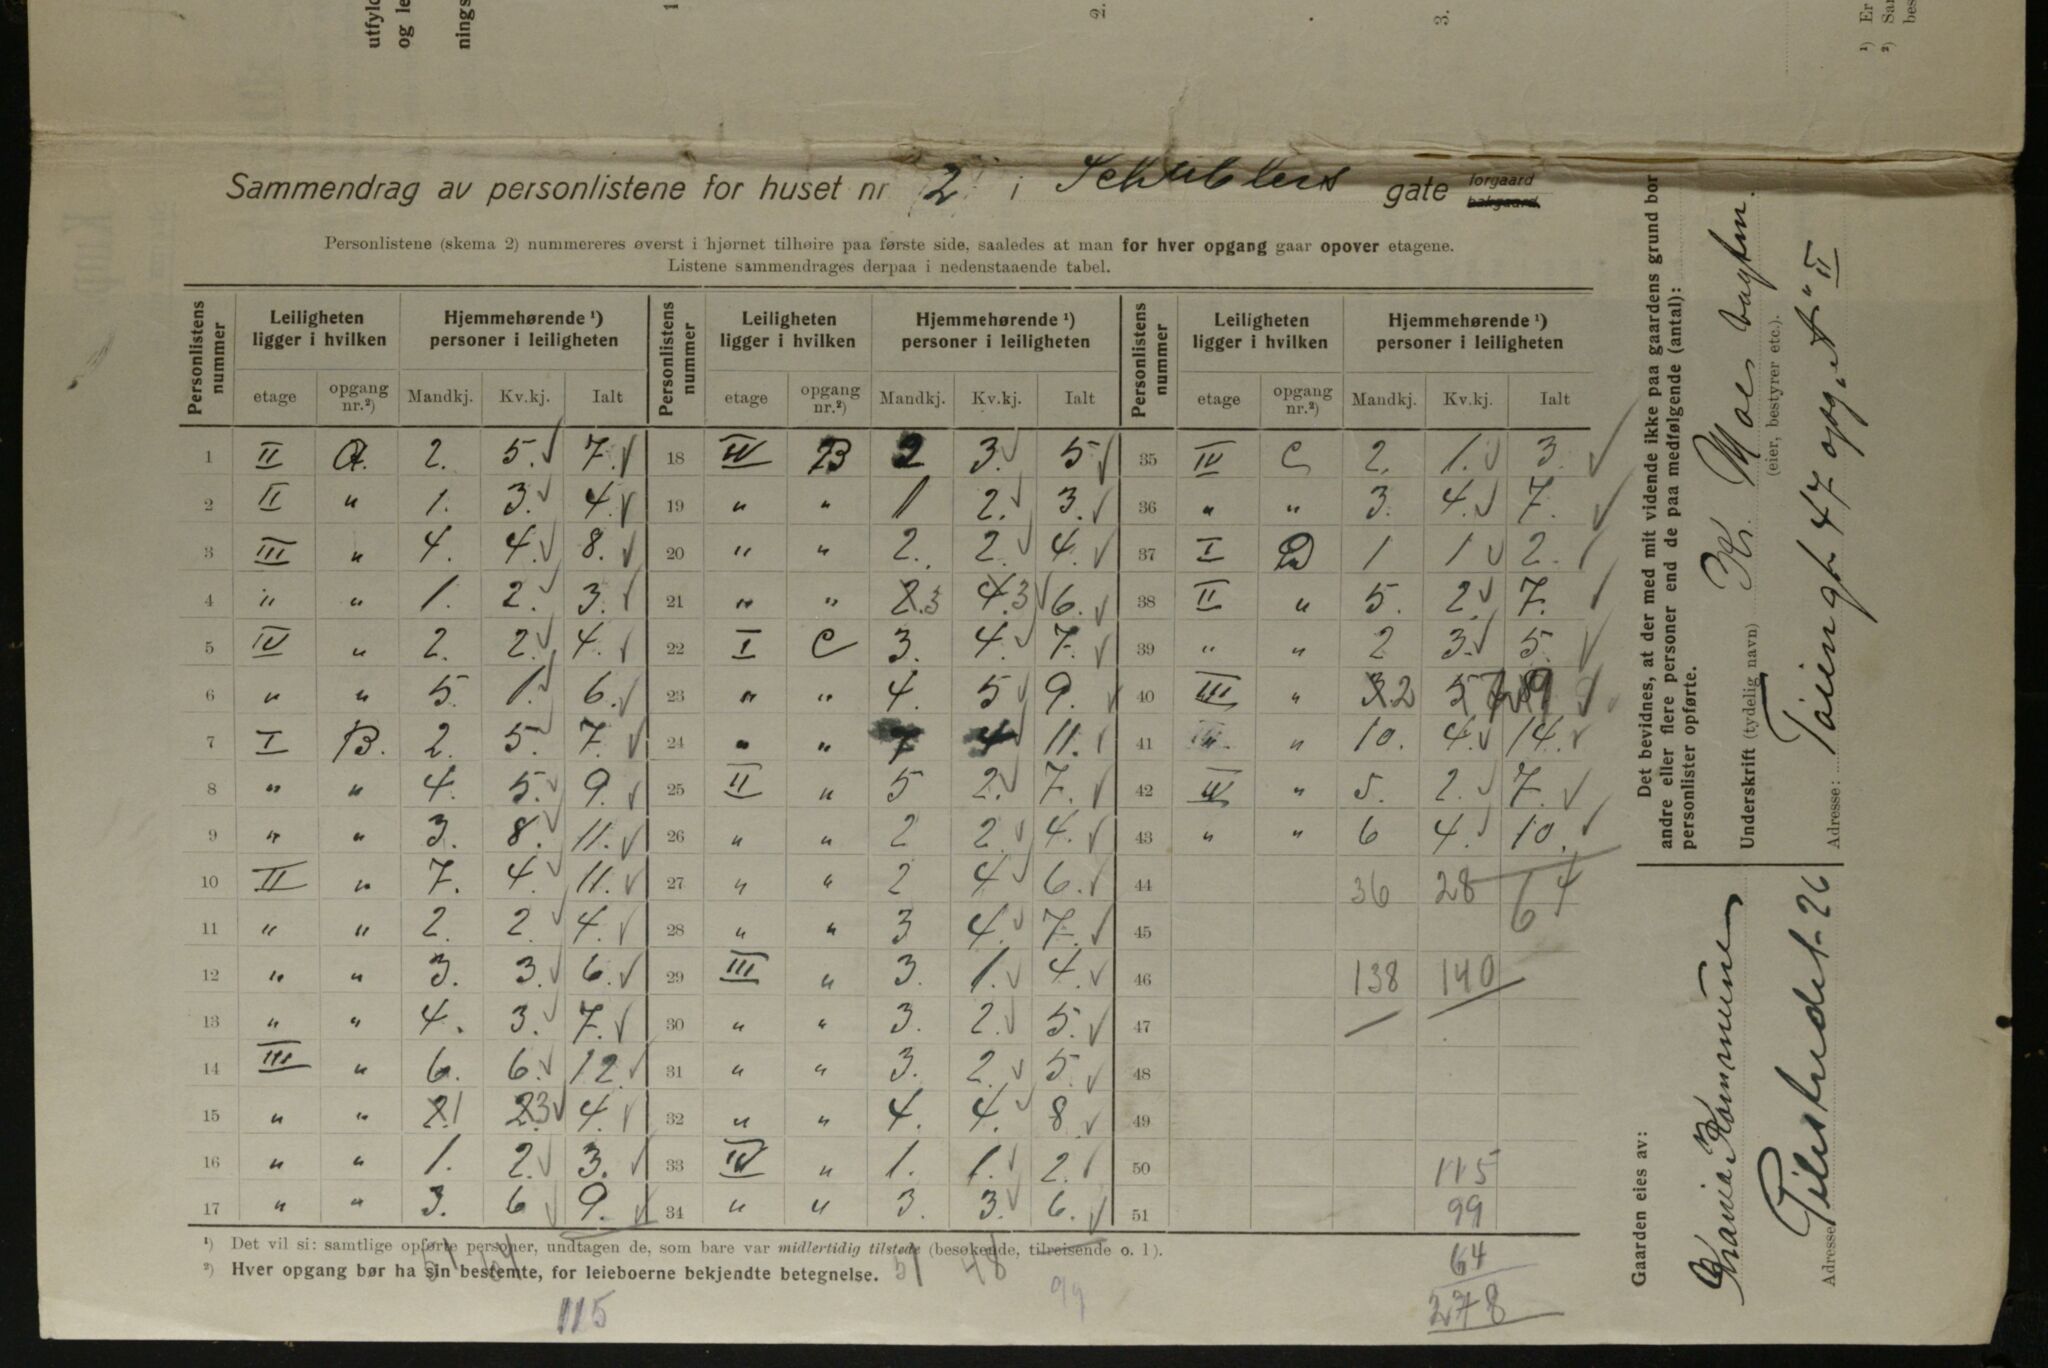 utfyld
og le
nings
1
2.
3.
¹) Er
²) Sar
bes
Sammendrag av personlistene for huset nr 2 i Schüblers gate forgaard bakgaard.
Personlistene (skema 2) nummereres øverst i hjørnet tilhøire paa første side, saaledes at man for hver opgang gaar opover etagene.
Listene sammendrages derpaa i nedenstaaende tabel.
Personlistens nummer | Leiligheten ligger i hvilken | Hjemmehørende ¹) personer i leiligheten | Personlistens nummer | Leiligheten ligger i hvilken | Hjemmehørende ¹) personer i leiligheten | Personlistens nummer | Leiligheten ligger i hvilken | Hjemmehørende ¹) personer i leiligheten
etage | opgang nr.²) | Mandkj. | Kv.kj. | Ialt | etage | opgang nr.²) | Mandkj. | Kv.kj. | Ialt | etage | opgang nr.²) | Mandkj. | Kv.kj. | Ialt
1 II A. 2. 5. 7. 18 IV B 2 3. 5 35 IV C 2. 1. 3.
2 II " 1. 3. 4. 19 " " 1 2. 3. 36 " " 3. 4. 7.
3 III " 4. 4. 8. 20 " " 2. 2 4. 37 I D 1 1 2.
4 " " 1. 2. 3. 21 " " 2.3 4.3 6. 38 II " 5. 2. 7.
5 IV " 2. 2. 4. 22 I C 3. 4. 7. 39 " " 2 3. 5.
6 " " 5. 1. 6. 23 " " 4. 5 9. 40 III " 32 57 9
7 I B. 2. 5. 7. 24 " " 7 4 11. 41 " " 10. 4. 14.
8 " " 4. 5. 9. 25 II " 5 2. 7. 42 IV " 5. 2. 7.
9 " " 3. 8. 11. 26 " " 2 2. 4. 43 " " 6 4. 10.
10 II " 7. 4. 11. 27 " " 2 4 6. 44 36 28 64
11 " " 2. 2. 4. 28 " " 3 4. 7. 45
12 " " 3. 3. 6. 29 III " 3. 1. 4. 46 138 140
13 " " 4. 3. 7. 30 " " 3. 2. 5. 47
14 III " 6. 6. 12. 31 " " 3. 2. 5. 48
15 " " 2.1 2.3 4. 32 " " 4. 4. 8 49
16 " " 1. 2. 3. 33 IV " 1. 1. 2. 50 115
17 " " 3. 6 9. 34 " " 3. 3. 6. 51 99
¹) Det vil si: samtlige opførte personer, undtagen de, som bare var midlertidig tilstede (besøkende, tilreisende o. l.).
²) Hver opgang bør ha sin bestemte, for leieboerne bekjendte betegnelse.
51 64 51 48
115
99
64
278
Det bevidnes, at der med mit vidende ikke paa gaardens grund bor
andre eller flere personer end de paa medfølgende (antal):
personlister opførte.
Underskrift (tydelig navn) Kr. Moe vagtm.
(eier, bestyrer etc.).
Adresse: Tøiengt 47 opg. "A" II
Gaarden eies av:
Kristiania Kommune
Adresse Pilestredet 26